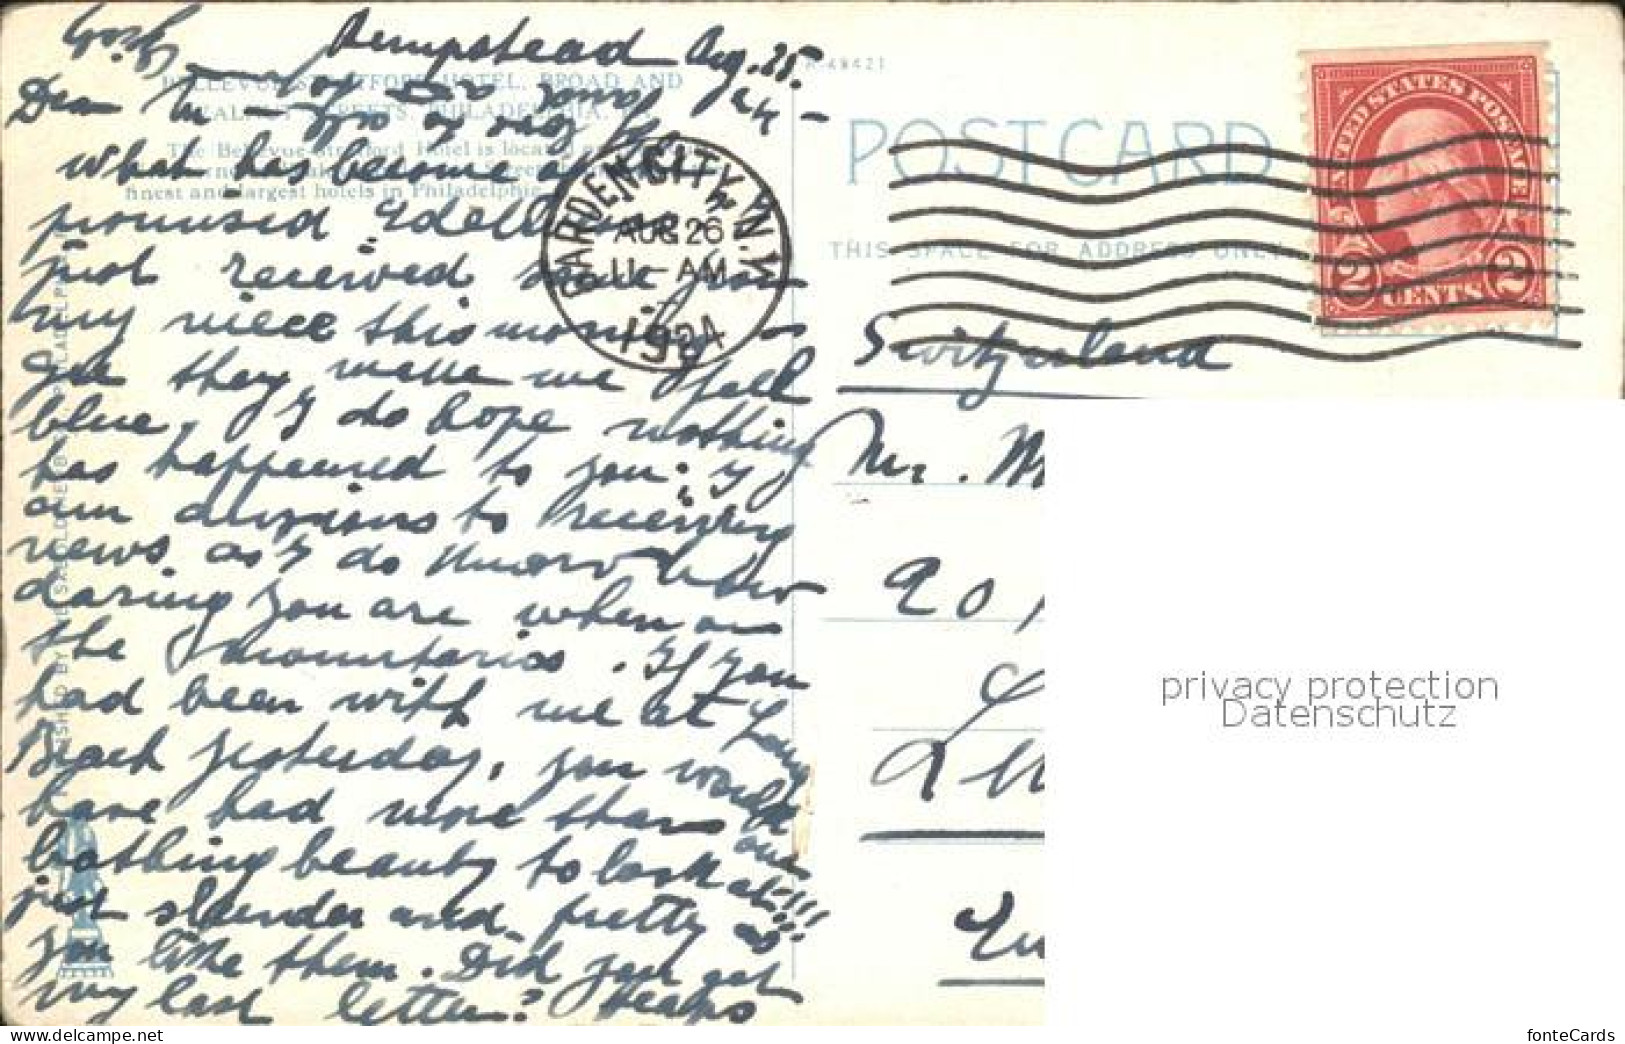 Hempstead Aug. 25.
1924
Dear M
BELLEVUE-STRATFORD HOTEL, BROAD AND
WALNUT STREETS, PHILADELPHIA.
The Bellevue-Stratford Hotel is located
finest and largest hotels in Philadelphia
what has become of the
promised Edelweiss
just received some from
my niece this morning
Gee they make me feel
blue. I do hope nothing
has happened to you; I
am anxious to receiving
news as I do know how
daring you are when on
the mountains. If you
had been with me at Long
Beach yesterday, you would
have had more than one
bathing beauty to look at!!!
just slender and pretty as
you like them. Did you get
my last letter? Heaps
GARDEN CITY, N.Y.
AUG 26
11-AM
1924
A-49421
POST CARD
THIS SPACE FOR ADDRESS ONLY
UNITED STATES POSTAGE
2 CENTS 2
Switzerland
Mr. M
privacy protection
Datenschutz
fonteCards